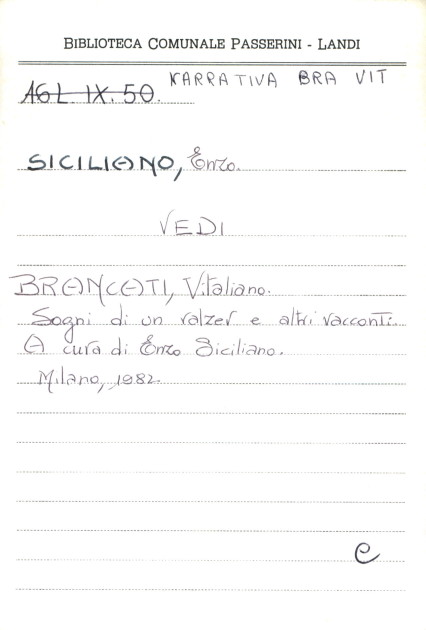 BIBLIOTECA COMUNALE PASSERINI - LANDI
NARRATIVA BRA VIT
AGL. IX. 50.
SICILIANO, Enzo.
VEDI
BRANCATI, Vitaliano.
Sogni di un valzer e altri racconti.
A cura di Enzo Siciliano.
Milano, 1982.
e